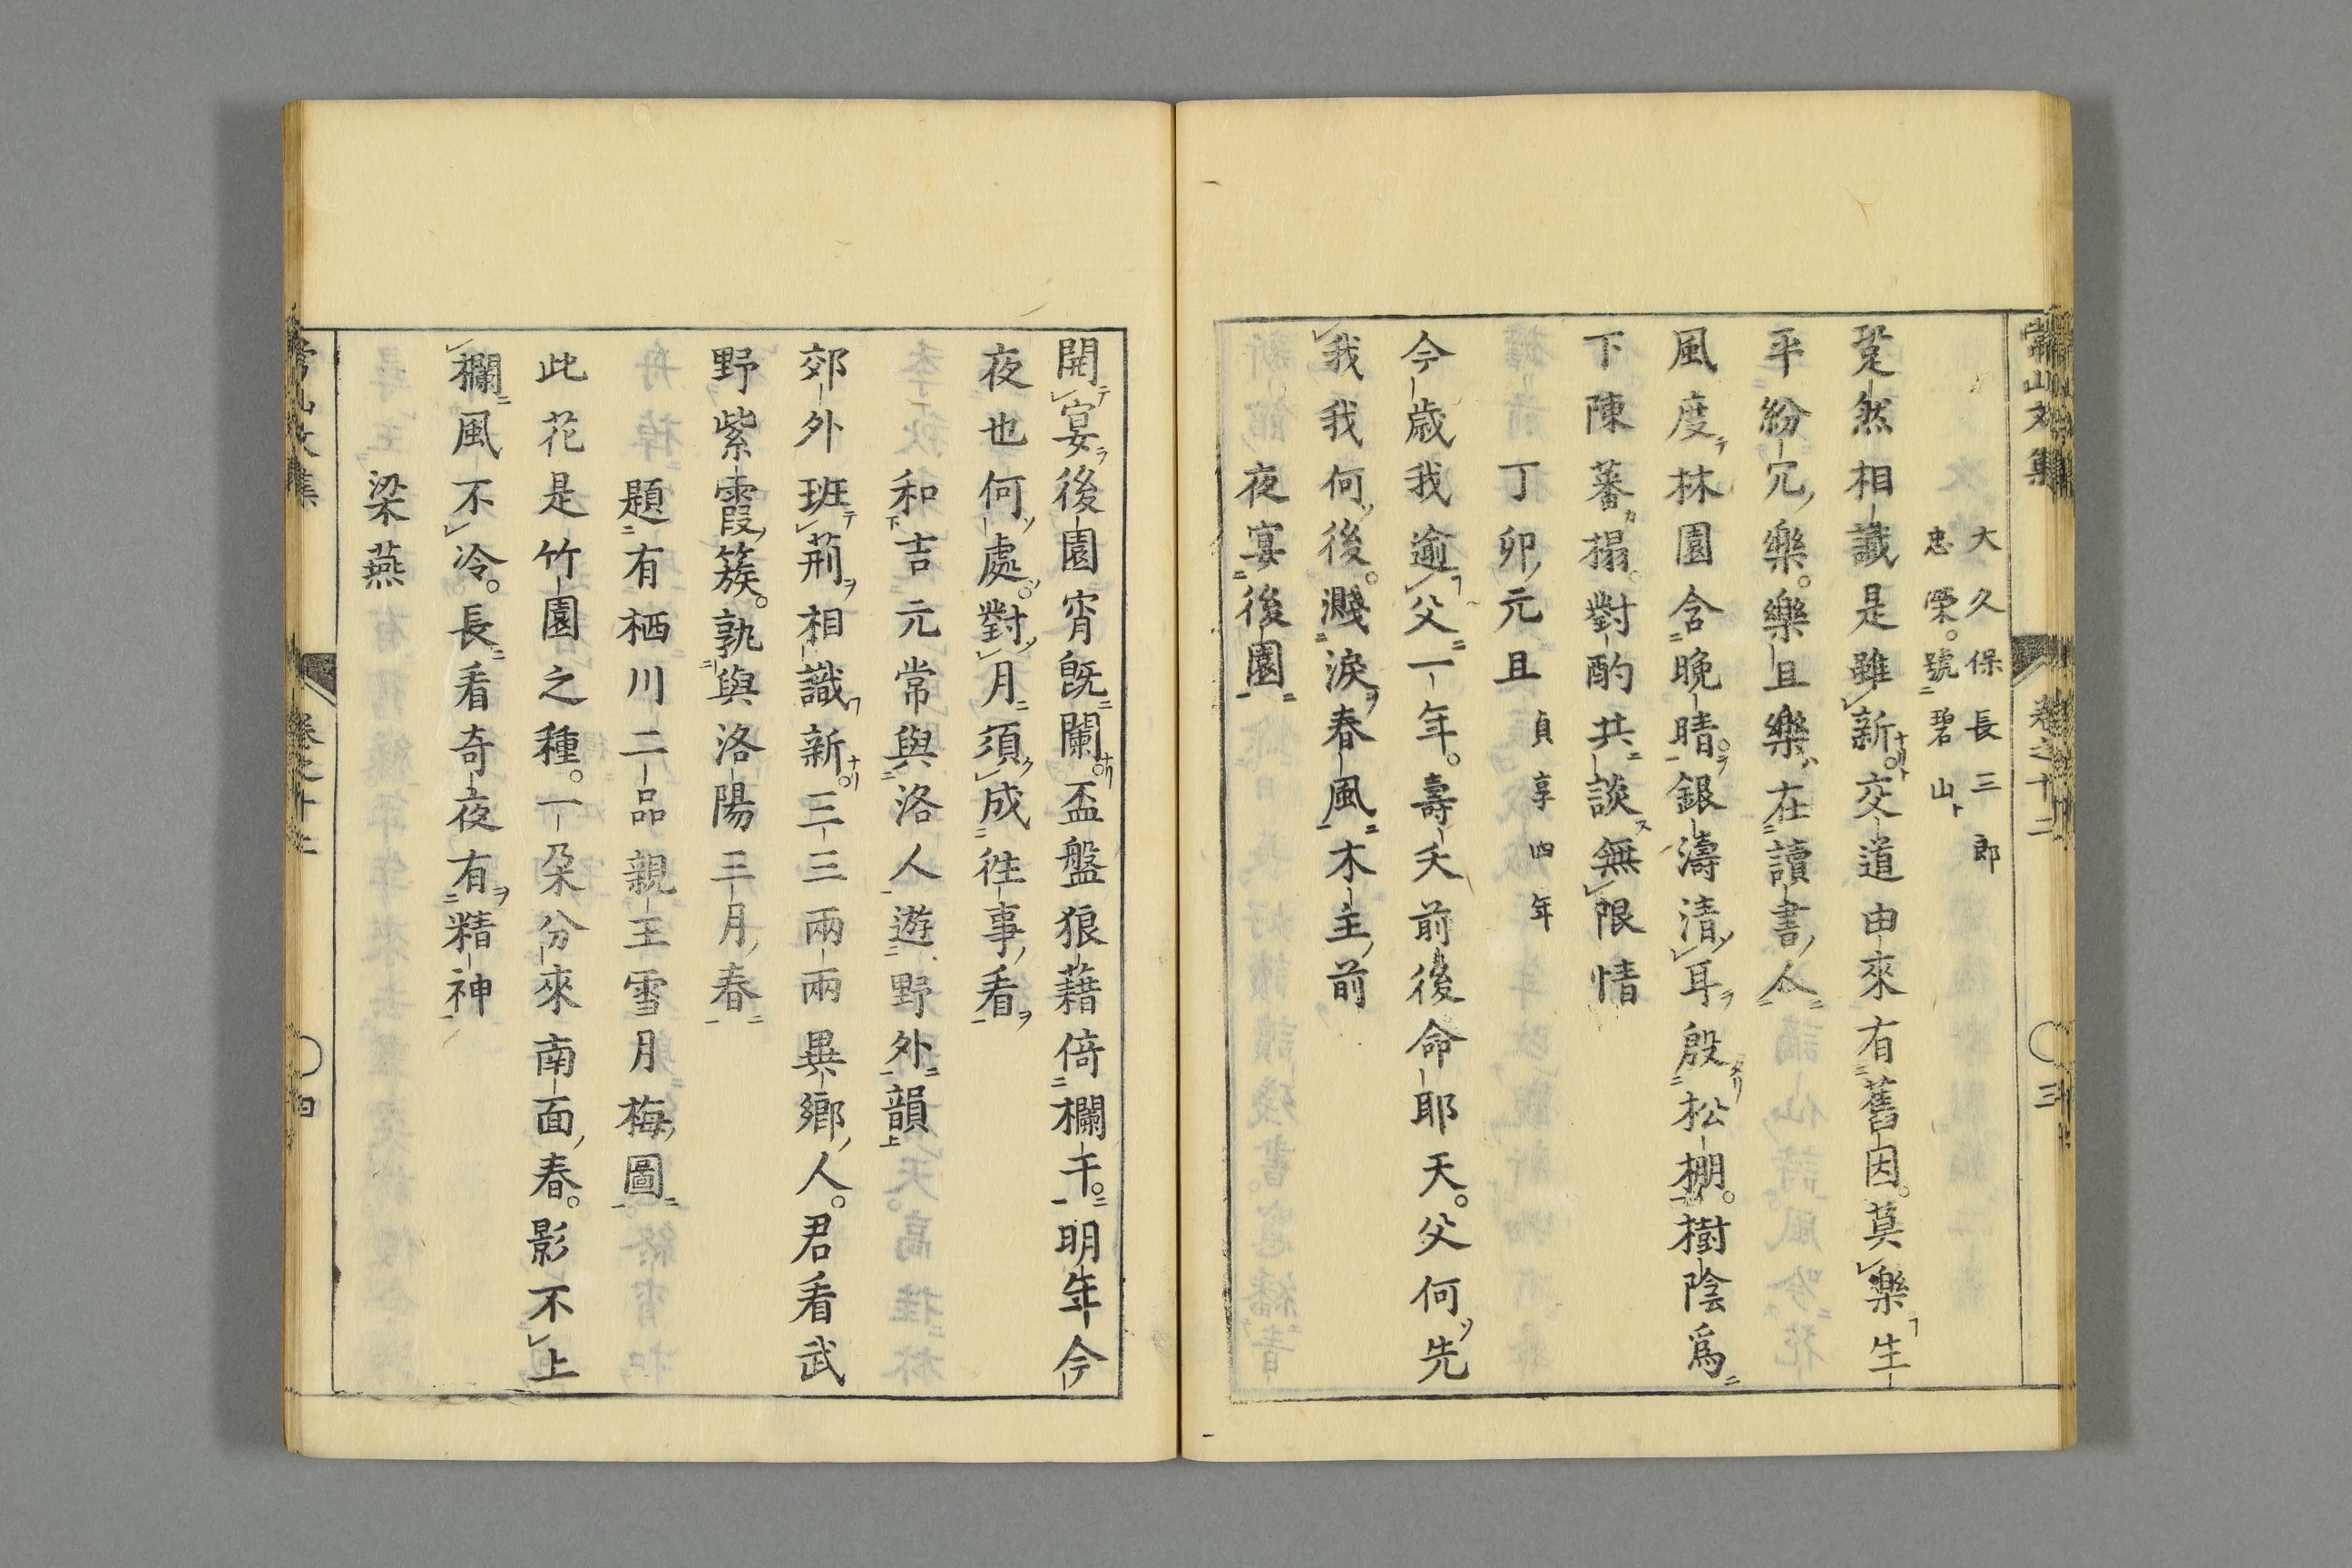 常山文集 卷之十二 ○三
大久保長三郎
忠榮。號碧山
跫然相識是雖新。交道由來有舊因。莫樂生
平紛冗樂。樂且樂在讀書人
風度林園含晚晴。銀濤清耳殷松棚。樹陰爲
下陳蕃榻。對酌共談無限情
丁卯元旦 貞享四年
今歳我逾父一年。壽夭前後命耶天。父何先
我我何後。濺淚春風木主前
夜宴後園
開宴後園宵既闌。盃盤狼藉倚欄干。明年今
夜也何處。對月須成徃事看
和吉元常與洛人遊野外韻
郊外班荊相識新。三三兩兩異鄉人。君看武
野紫霞簇。孰與洛陽三月春
題有栖川二品親王雪月梅圖
此花是竹園之種。一朶分來南面春。影不上
欄風不冷。長看奇夜有精神
梁燕
常山文集 卷之十二 ○四